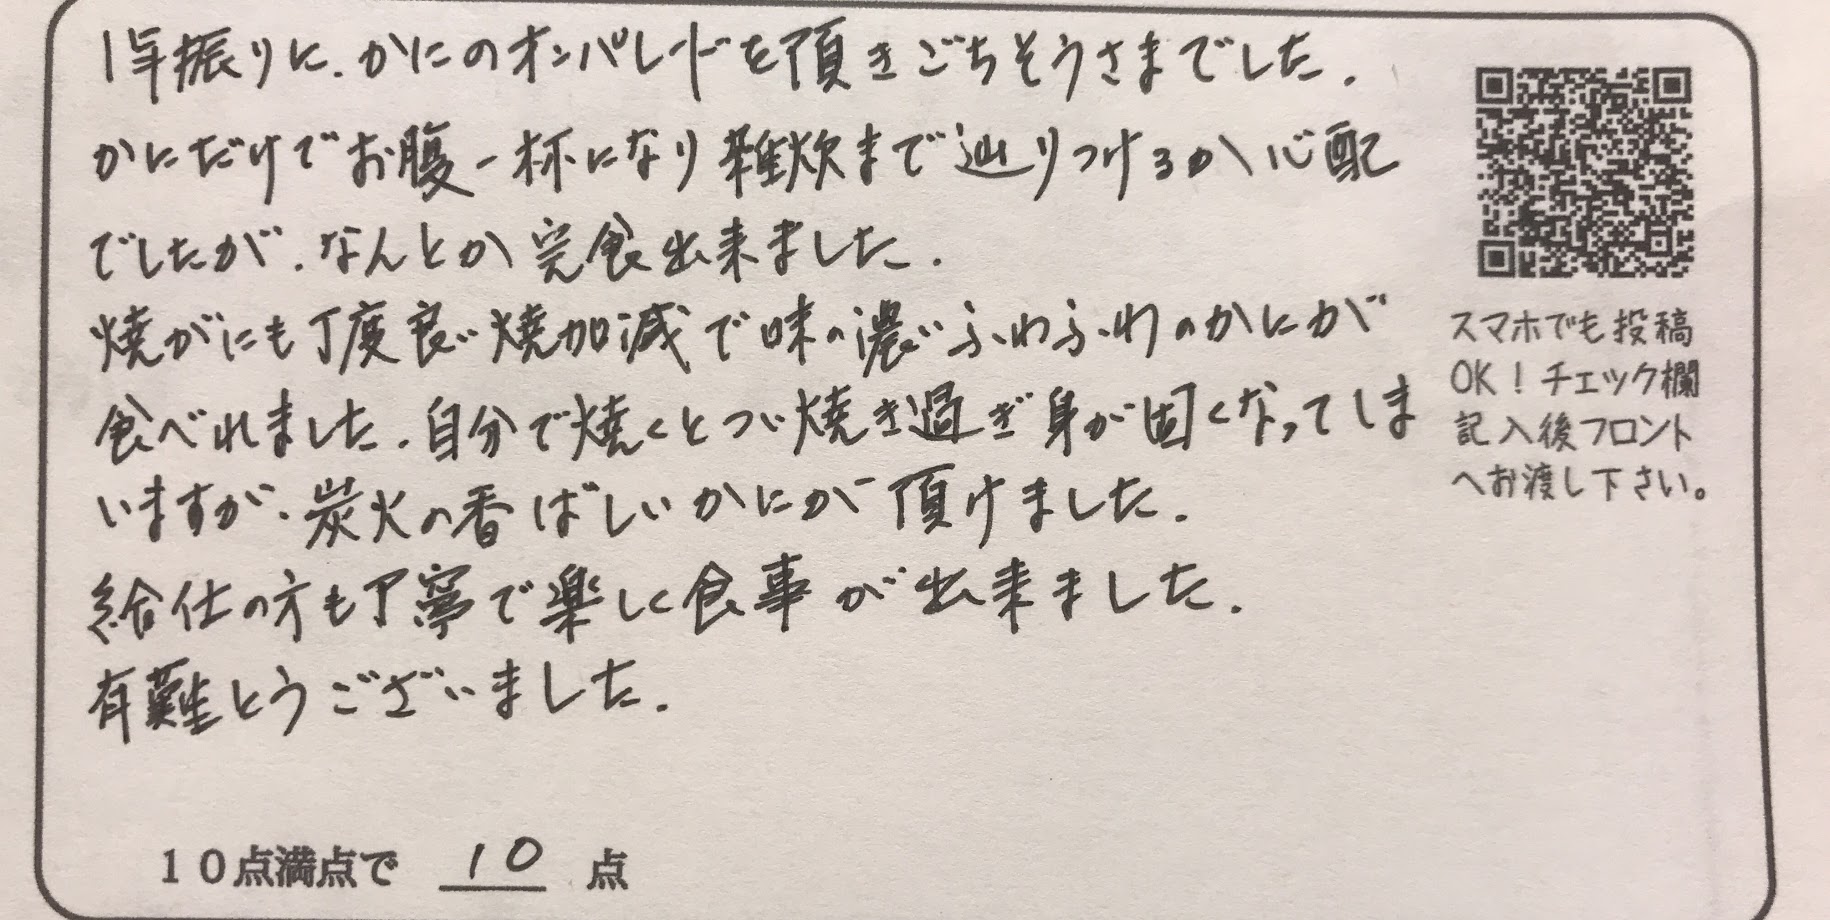 1年振りに、かにのオンパレードを頂きごちそうさまでした。
かにだけでお腹一杯になり雑炊まで辿りつけるか心配
でしたが、なんとか完食出来ました。
焼がにも丁度良い焼加減で味の濃いふわふわのかにが
食べれました。自分で焼くとつい焼き過ぎ身が固くなってしま
いますが、炭火の香ばしいかにが頂けました。
給仕の方も丁寧で楽しく食事が出来ました。
有難とうございました。
スマホでも投稿
OK!チェック欄
記入後フロント
へお渡し下さい。
10点満点で 10 点